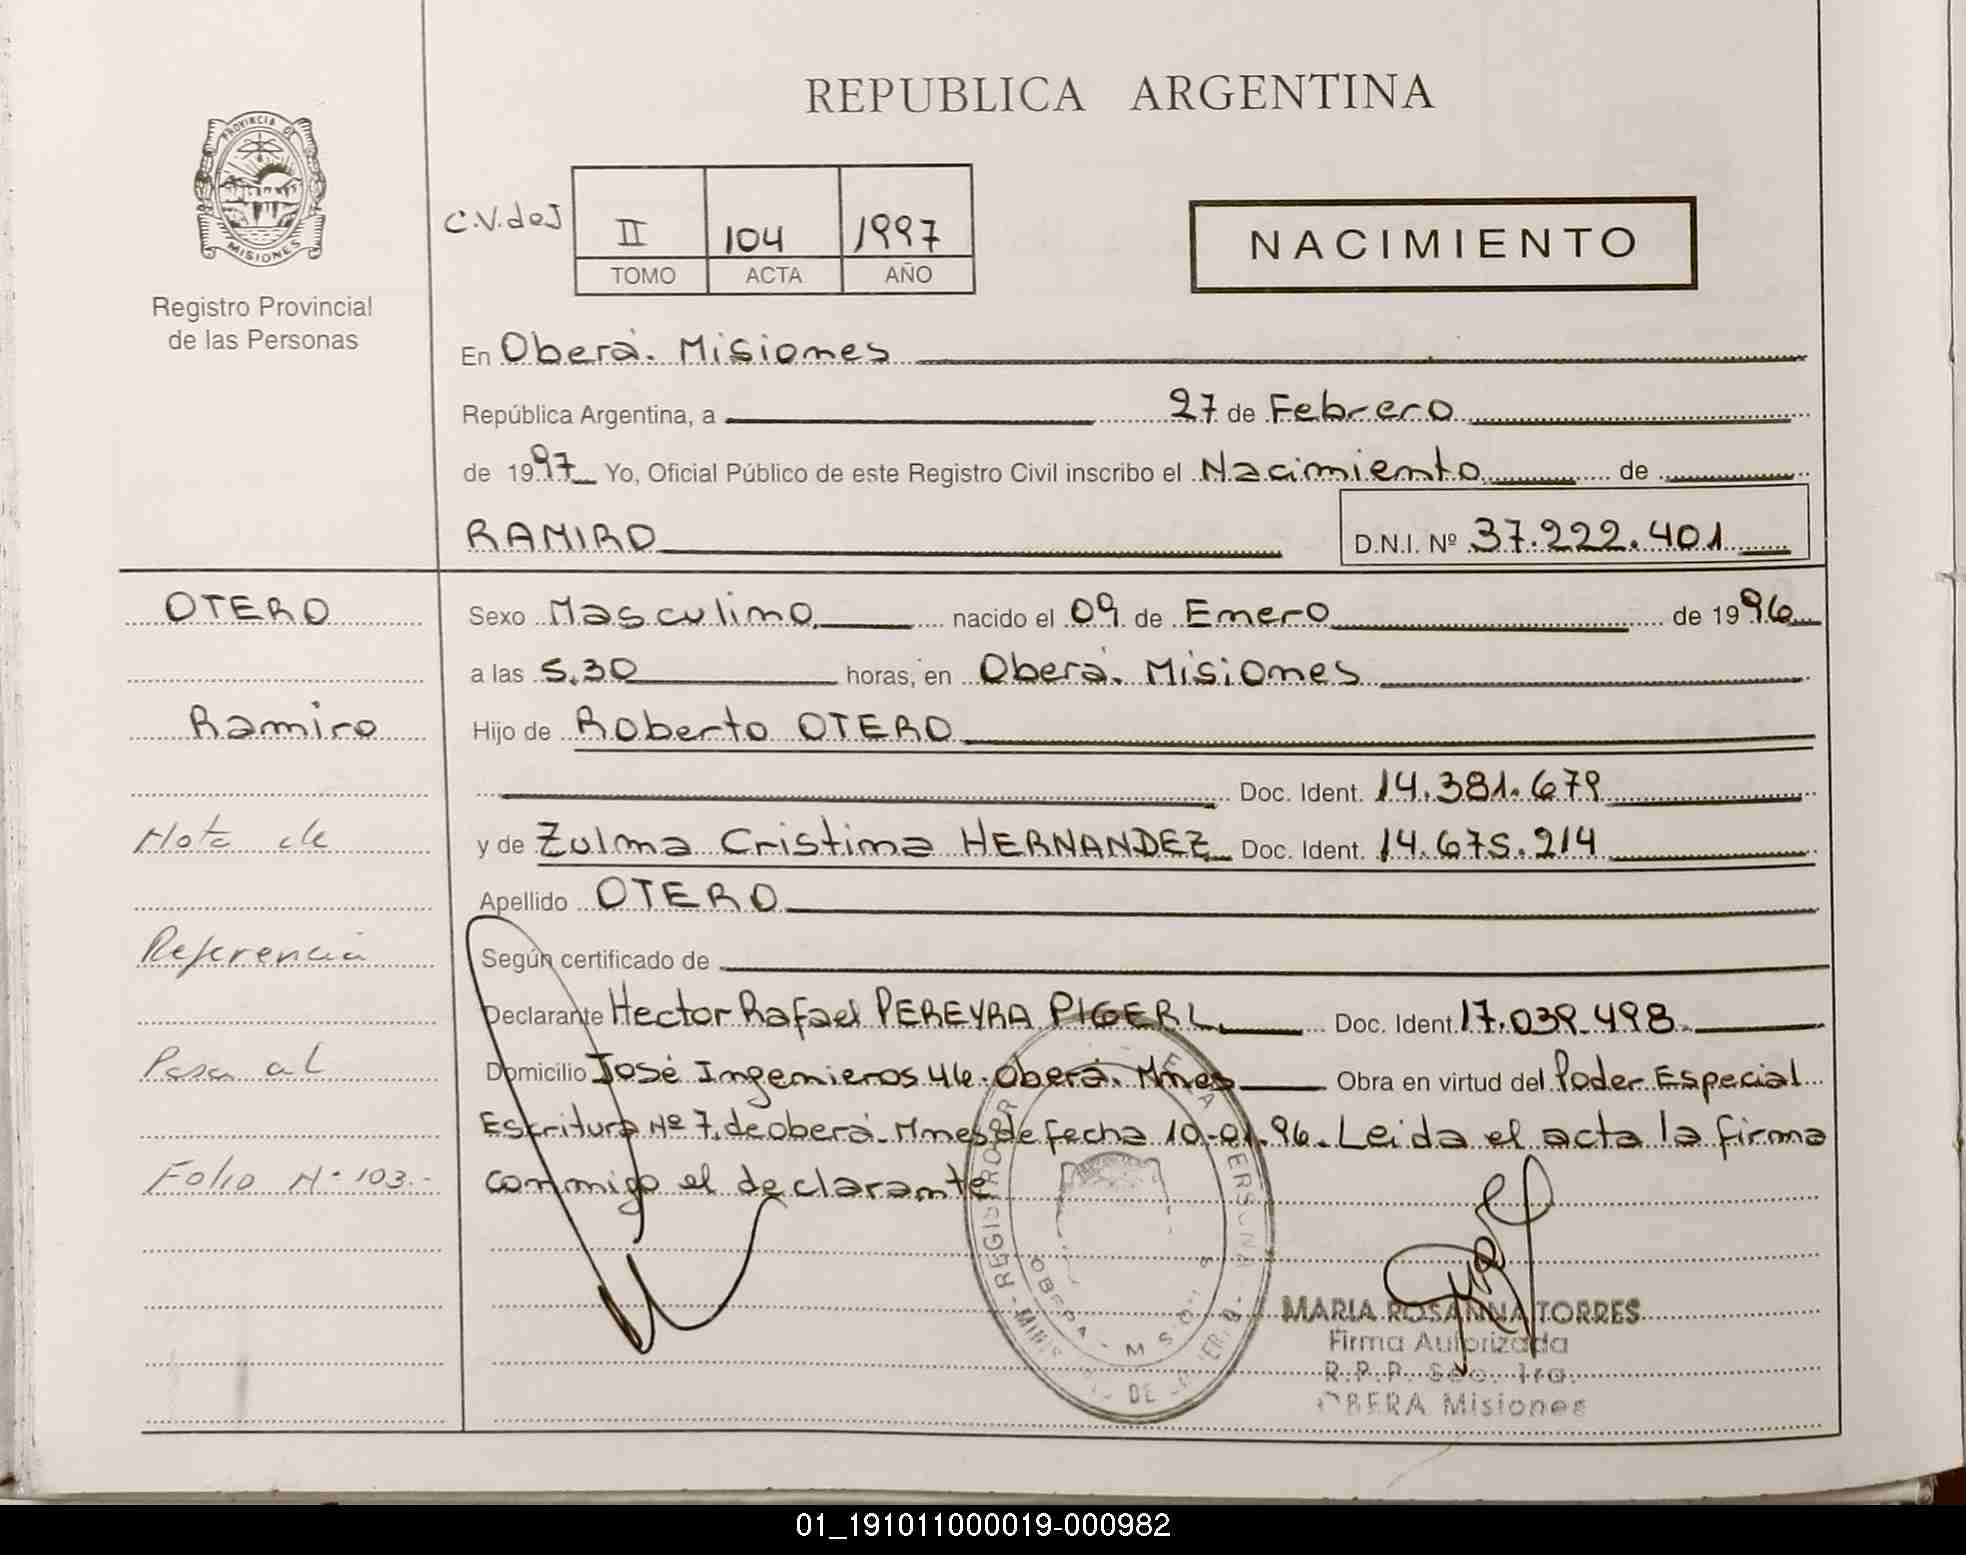 REPUBLICA ARGENTINA
PROVINCIA DE
MISIONES
Registro Provincial
de las Personas
C.V.deJ
II 104 1997
TOMO ACTA AÑO
NACIMIENTO
En Oberá. Misiones
República Argentina, a 27 de Febrero
de 1997 Yo, Oficial Público de este Registro Civil inscribo el Nacimiento de
RAMIRO D.N.I. Nº 37.222.401
OTERO
Ramiro
Nota de
Referencia
Pasa al
Folio Nº 103.-
Sexo Masculino nacido el 09 de Enero de 1996
a las 5.30 horas, en Oberá. Misiones
Hijo de Roberto OTERO
Doc. Ident. 14.381.679
y de Zulma Cristina HERNANDEZ Doc. Ident. 14.675.214
Apellido OTERO
Según certificado de
Declarante Hector Rafael PEREYRA PIGERL Doc. Ident. 17.039.498
Domicilio José Ingenieros 46. Oberá. Mnes Obra en virtud del Poder Especial
Escritura Nº 7. de oberá. Mnes de fecha 10-01-96. Leida el acta la firma
conmigo el declarante
MARIA ROSANNA TORRES
Firma Autorizada
R.P.P. Sec. 1ra.
OBERA Misiones
01_191011000019-000982